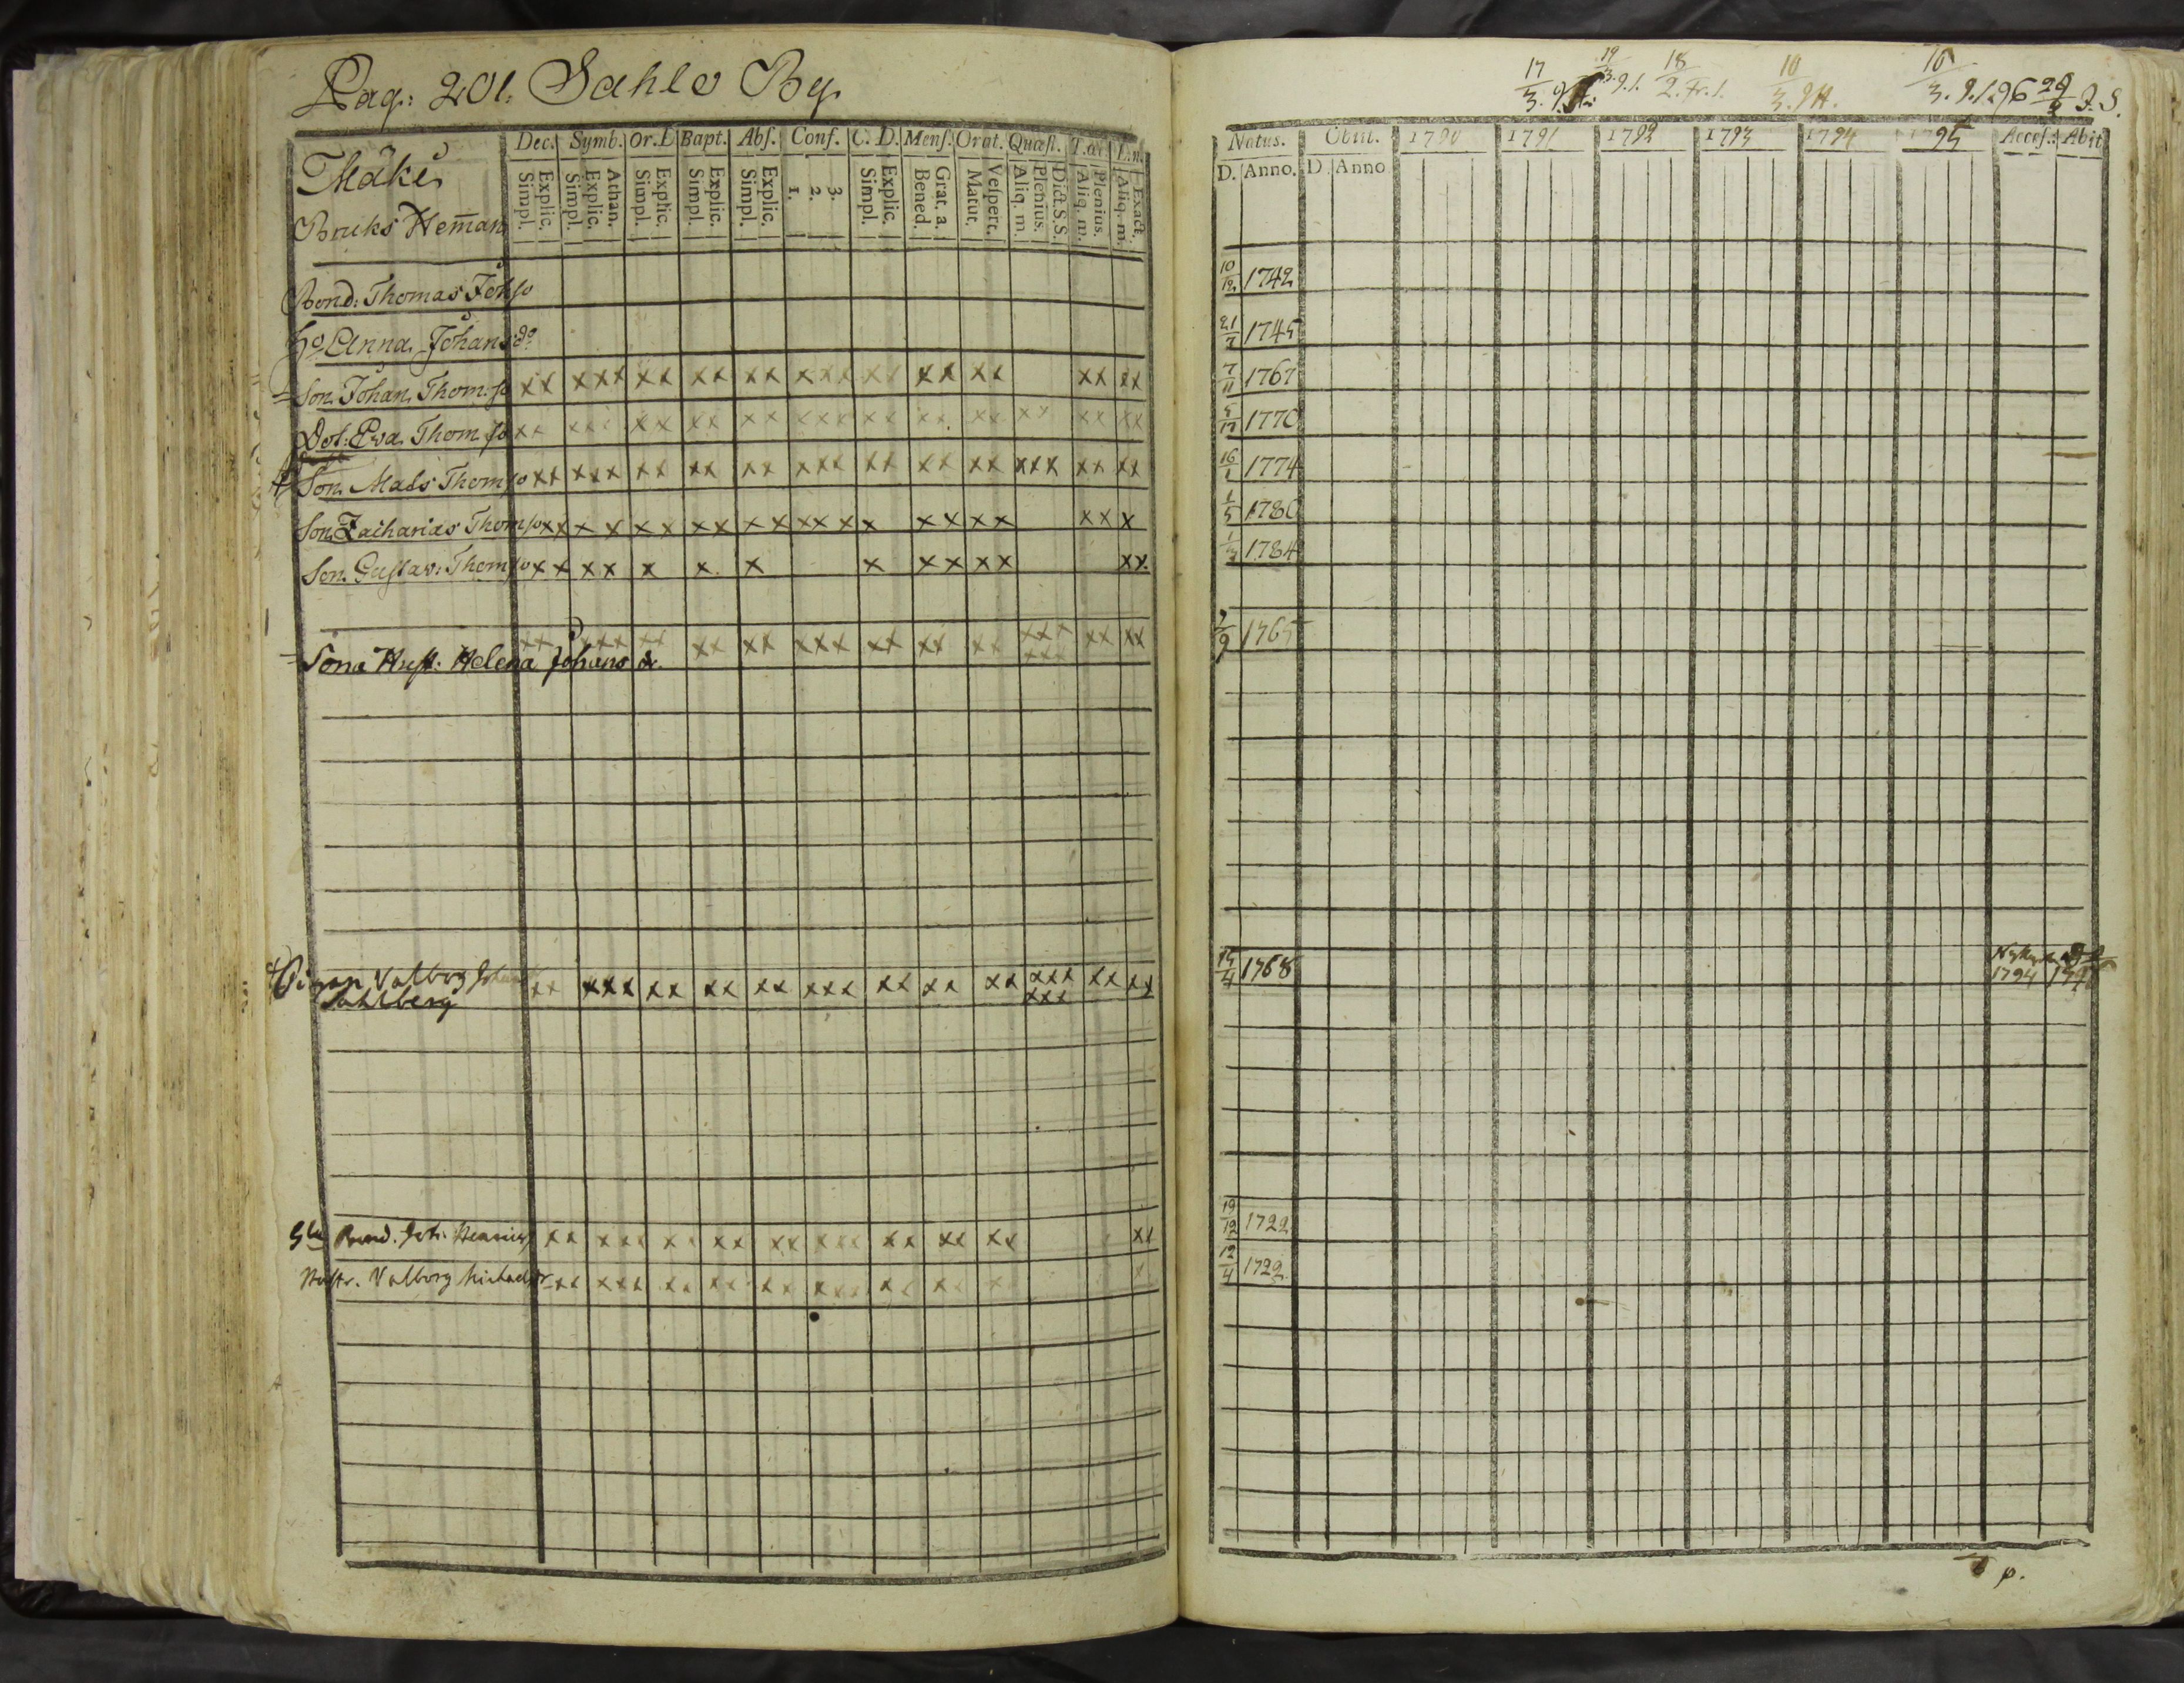 Pag: 201. Sahlo By.
Mäki
Bruks Hem̄an
Dec. Symb. Or. D Bapt. Abs. Conf. C. D. Mens. Orat. Quæst. T. œc.
Explic. Simpl. Athan. Explic. Simpl. Explic. Simpl. Explic. Simpl. Explic. Simpl. 3. 2. 1. Explic. Simpl. Grat. a. Bened. Vespert. Matut. Dict. S.S. Plenius. Aliq. m. Plenius. Aliq. m. Exact. Aliq. m.
Bond: Thomas Joh so
ho Anna Johans do
Son Johan Thom. so xx xxx xx xx xx xxx xx xx xx xx xx
Dot: Eva Thom xx xxx xx xx xx xxx xx xx xx xx xx xx
Son Mats Thom so xx xxx xx xx xx xxx xx xx xx xxx xx xx
Son Zacharias Thom so xx x x xx xx xx xxx x xx xx xx x
Son Gustav: Thom so xx xx x x x x xx xx xx
Sona Hust: Helena Johans dr. xx xxx xx xx xx xxx xx xx xx xxx xxx xx xx
Pigan Valborg
Sahlberg xx xxx xx xx xx xxx xx xx xx xxx xxx xx xx
Bond. Joh: xx xxx xx xx xx xxx xx xx xx xx
Hustr. Valborg Michaelsdr xx xxx xx xx xx xxx xx xx x x
17/3. 19/3. 9.1. 18/2. Fr. 1. 10/3. 9 H. 16/3. 9.1. 96 29/2 J. S.
Natus. Obiit. 1790 1791 1792 1793 1794 1795 Access. Abit
D. Anno. D. Anno
10/12 1742
21/7 1745
7/11 1767
5/17 1770
16/1 1774
1/5 1780
1/3 1784
2/9 1765
15/4 1768 1794
19/12 1722
12/4 1722